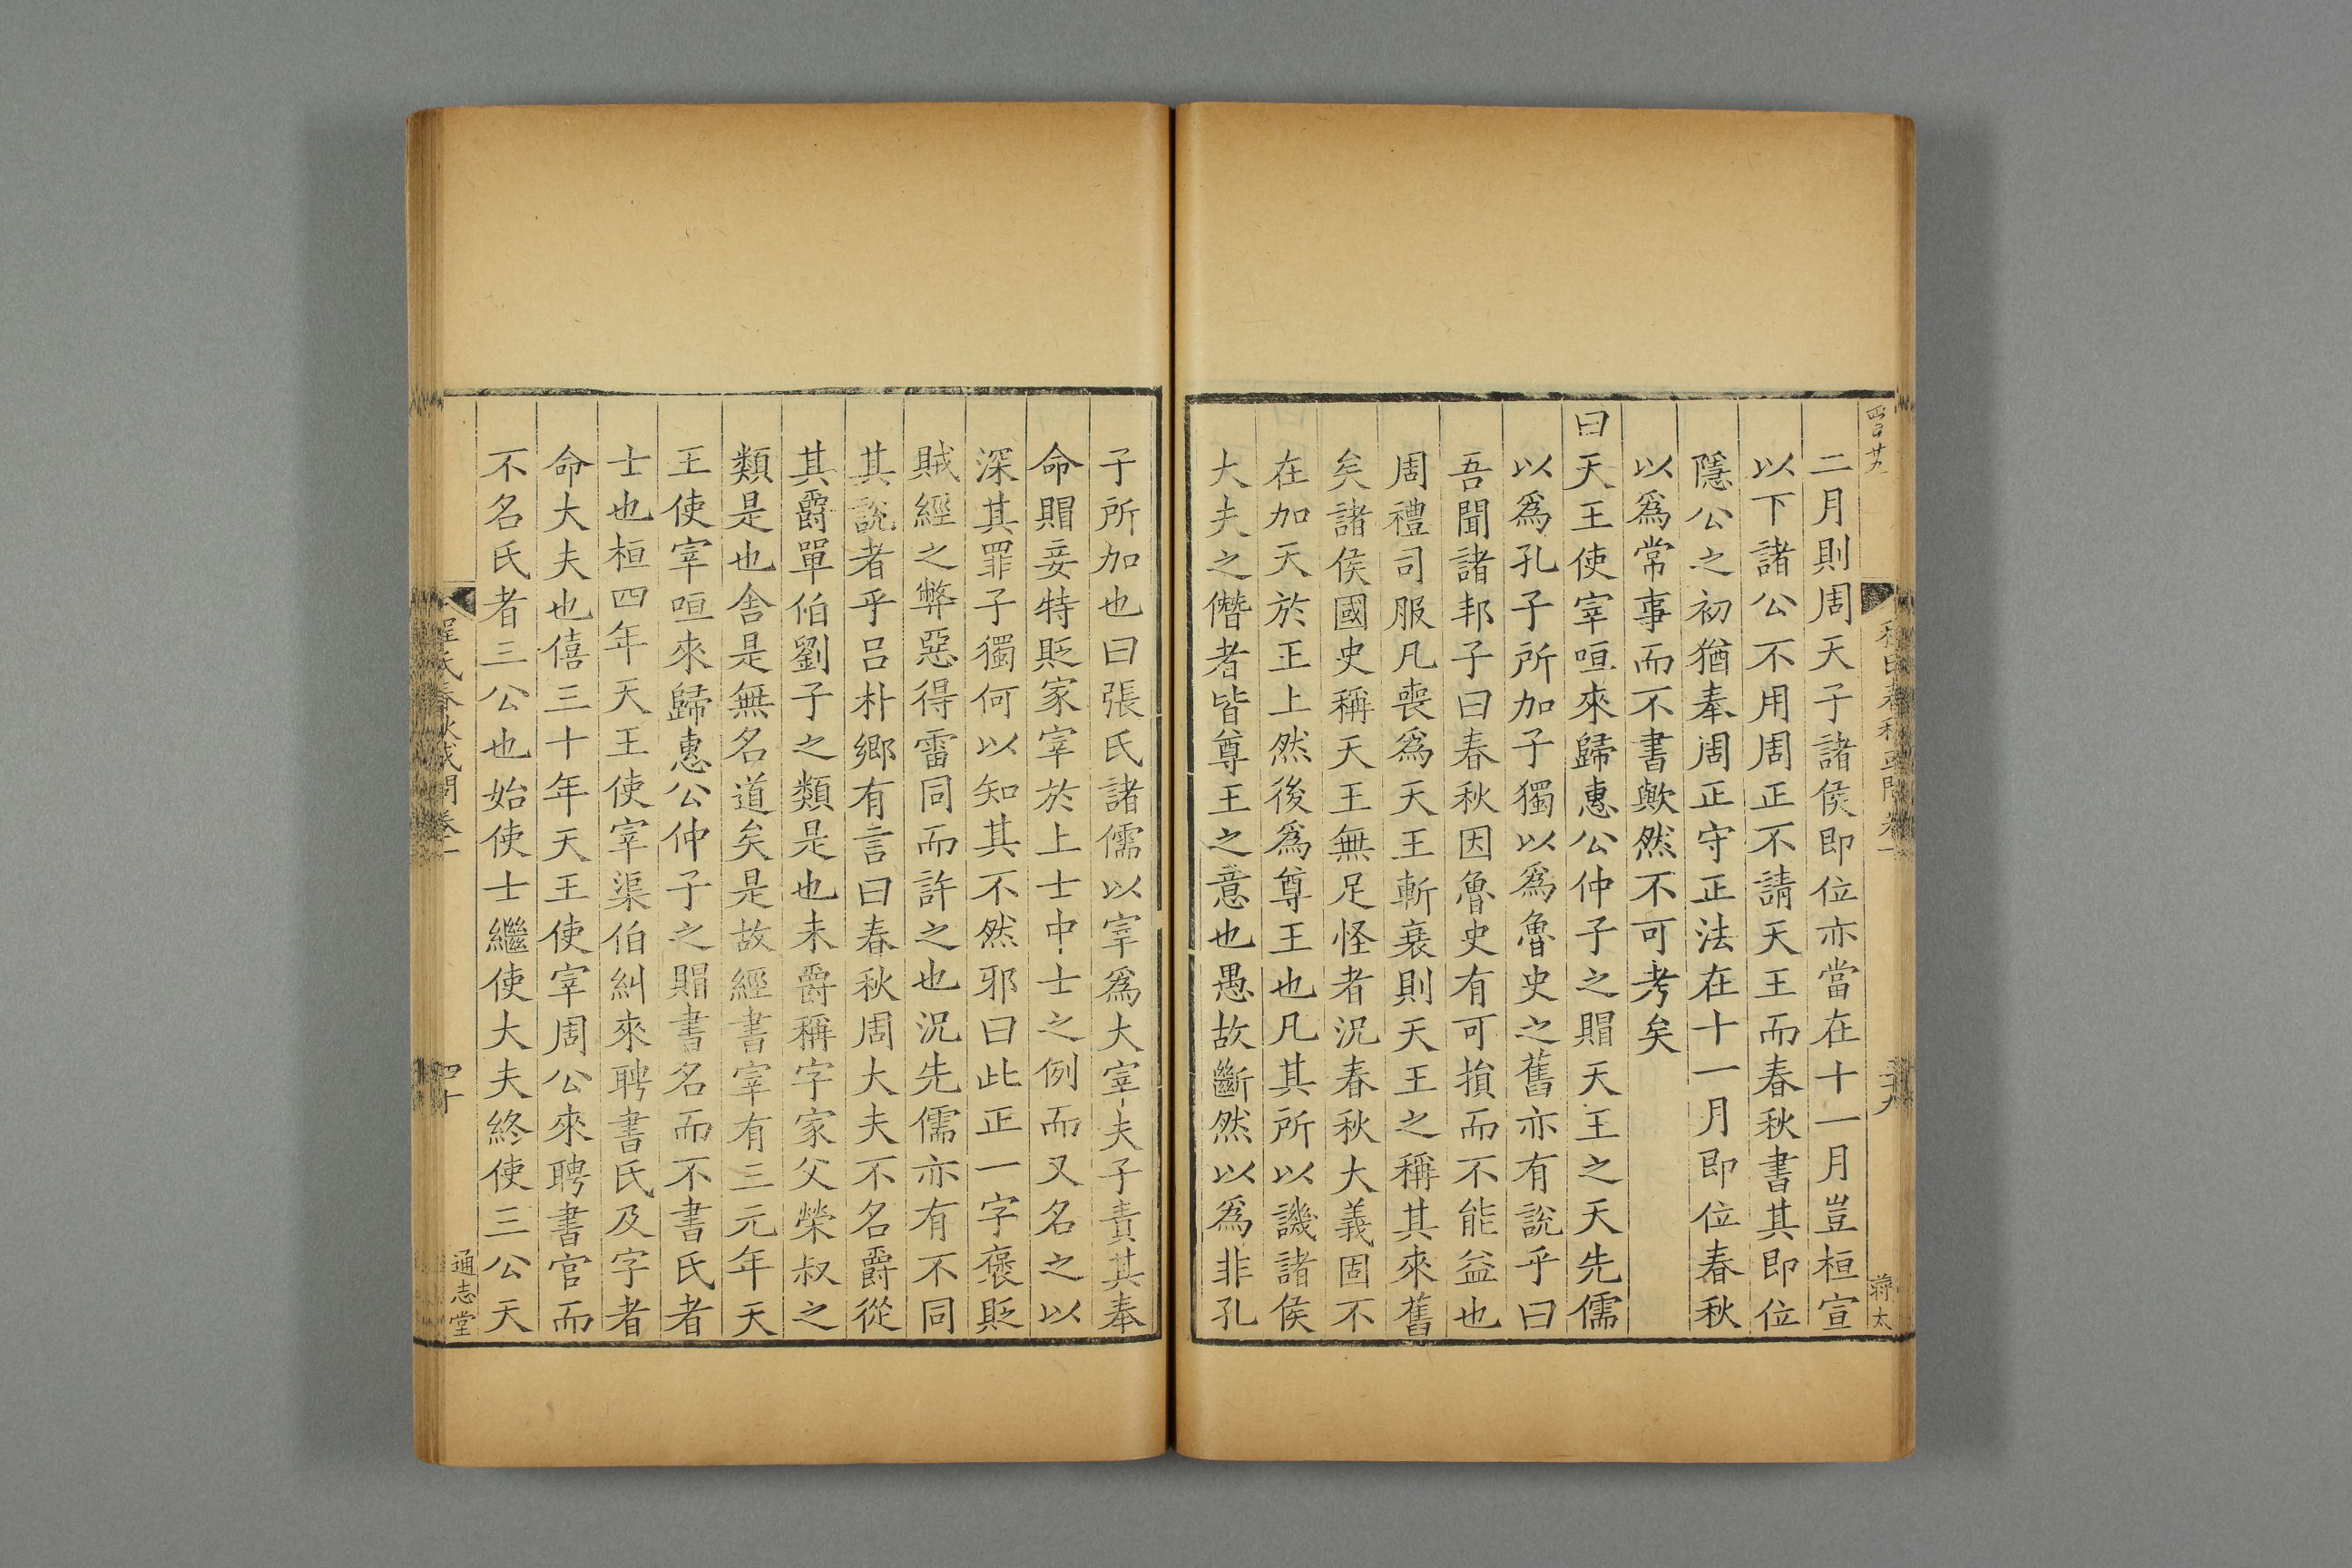 二月則周天子諸侯即位亦當在十一月豈桓宣
以下諸公不用周正不請天王而春秋書其即位
隱公之初猶奉周正守正法在十一月即位春秋
以爲常事而不書歟然不可考矣
曰天王使宰咺來歸惠公仲子之賵天王之天先儒
以爲孔子所加子獨以爲魯史之舊亦有說乎曰
吾聞諸邦子曰春秋因魯史有可損而不能益也
周禮司服凡喪爲天王斬衰則天王之稱其來舊
矣諸侯國史稱天王無足怪者況春秋大義固不
在加天於王上然後爲尊王也凡其所以譏諸侯
大夫之僭者皆尊王之意也愚故斷然以爲非孔
子所加也曰張氏諸儒以宰爲大宰夫子責其奉
命賵妾特貶家宰於上士中士之例而又名之以
深其罪子獨何以知其不然邪曰此正一字褒貶
賊經之弊惡得雷同而許之也況先儒亦有不同
其說者乎呂朴鄉有言曰春秋周大夫不名爵從
其爵單伯劉子之類是也未爵稱字家父榮叔之
類是也舍是無名道矣是故經書宰有三元年天
王使宰咺來歸惠公仲子之賵書名而不書氏者
士也桓四年天王使宰渠伯糾來聘書氏及字者
命大夫也僖三十年天王使宰周公來聘書官而
不名氏者三公也始使士繼使大夫終使三公天
程氏春秋或問卷一
四十
通志堂